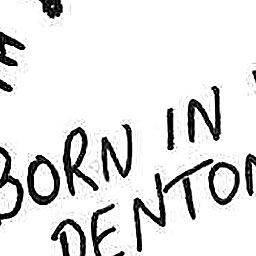 BORN IN
DENTON